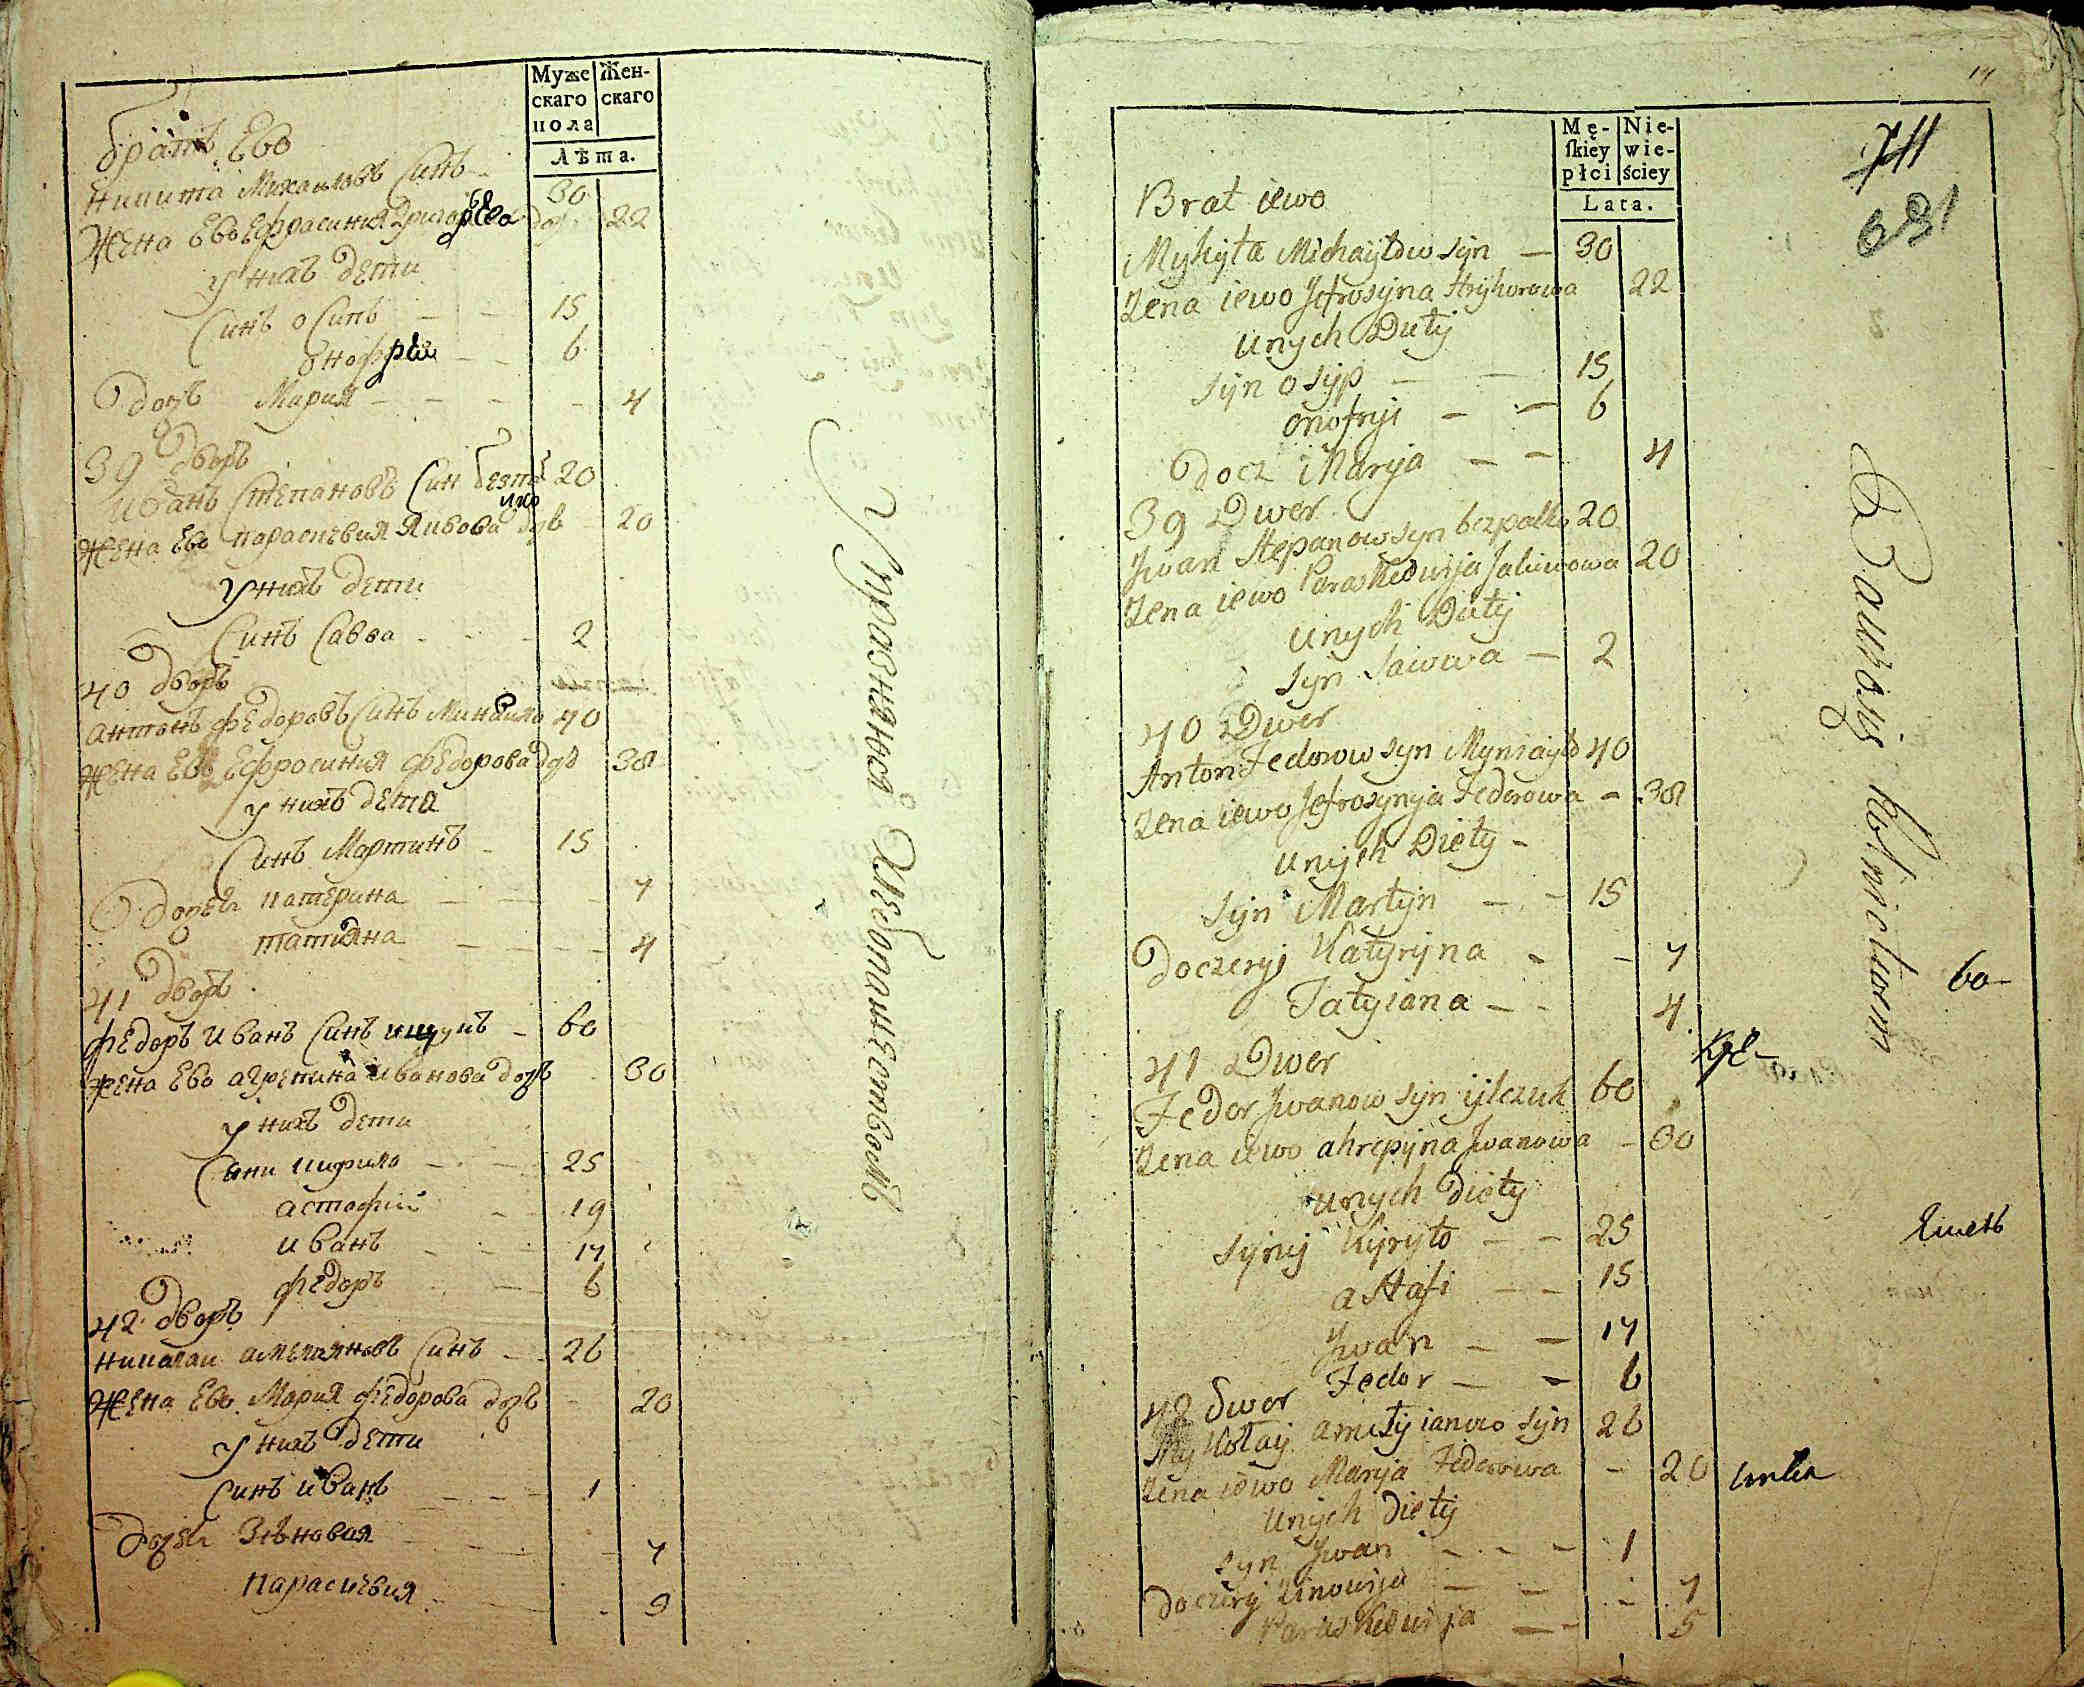 Муже
скаго
пола
Жен-
скаго
Лѣта.
братъ Ево
Никита Михаиловъ Синъ - 30
Жена Ево Ефросиния Григорьева доч 22
У нихъ дети
Синъ осипъ - - 15
онофрѣй - - 6
дочь Мария - - - - 4
39 дворъ
Иванъ Степановъ Син безпалко 20
Жена Ево параскевия Яковова дочь - 20
У нихъ дети
Синъ Савва - - - 2
40 дворъ
антонъ федоровъ Синъ Минаило 40
Жена Ево Ефросиния федорова дочь 38
У нихъ дети
Синъ Мартинъ - 15
дочери катерина - - - 7
татияна - - - - 4
41 дворъ
федоръ Иванъ Синъ ищукъ - 60
жена Ево агрепина Иванова дочь 30
У нихъ дети
Сини кирило - - - 25
астафий - 19
иванъ - - - 17
федоръ - - - 6
42 дворъ
николаи амелияновъ Синъ - - 26
Жена Ево Мария федорова дочь - 20
У нихъ дети
Синъ иванъ - - - 1
дочери Зѣновия - - - 7
параскевия - - - 9
Упразнялся Хлебопашествомъ
14
711
631
Mę-
skiey
płci
Nie-
wie-
ściey
Lata.
Brat iewo
Mykyta Michayłow syn — 30
Żena iewo Jefrosyna Hryhorowa 22
unych Dity
syn osyp — — 15
onofryi — — 6
docz Marija — — 4
39 Dwer
Jwan Stepanow syn bezpałko 20
Żena iewo Paraskewija Jakiwowa 20
unych Dity
syn Sawwa — 2
40 Dwer
Anton Fedorow syn Myniayło 40
Żena iewo Jefrosynyja Federowa - 38
unych Diety -
syn Martyn — - 15
Doczeryj Katyryna - - 7
Tatyiana - - 4
41 Dwer
Fedor Jwanow syn yszczuk 60
Żena iewo ahrepyna Jwanowa - 30
unych diety
synyj Kyryło - - 25
astafi - - 15
Jwan - - 17
Fedor — - 6
42 Dwer
Mykołay amełyianow syn 26
Żena iewo Maryja Federowa - 20
unych diety
syn Jwan - - - 1
doczery Zinowija — - - 7
Paraskewija — - 5
Bawiosię Rolnictwem
60-